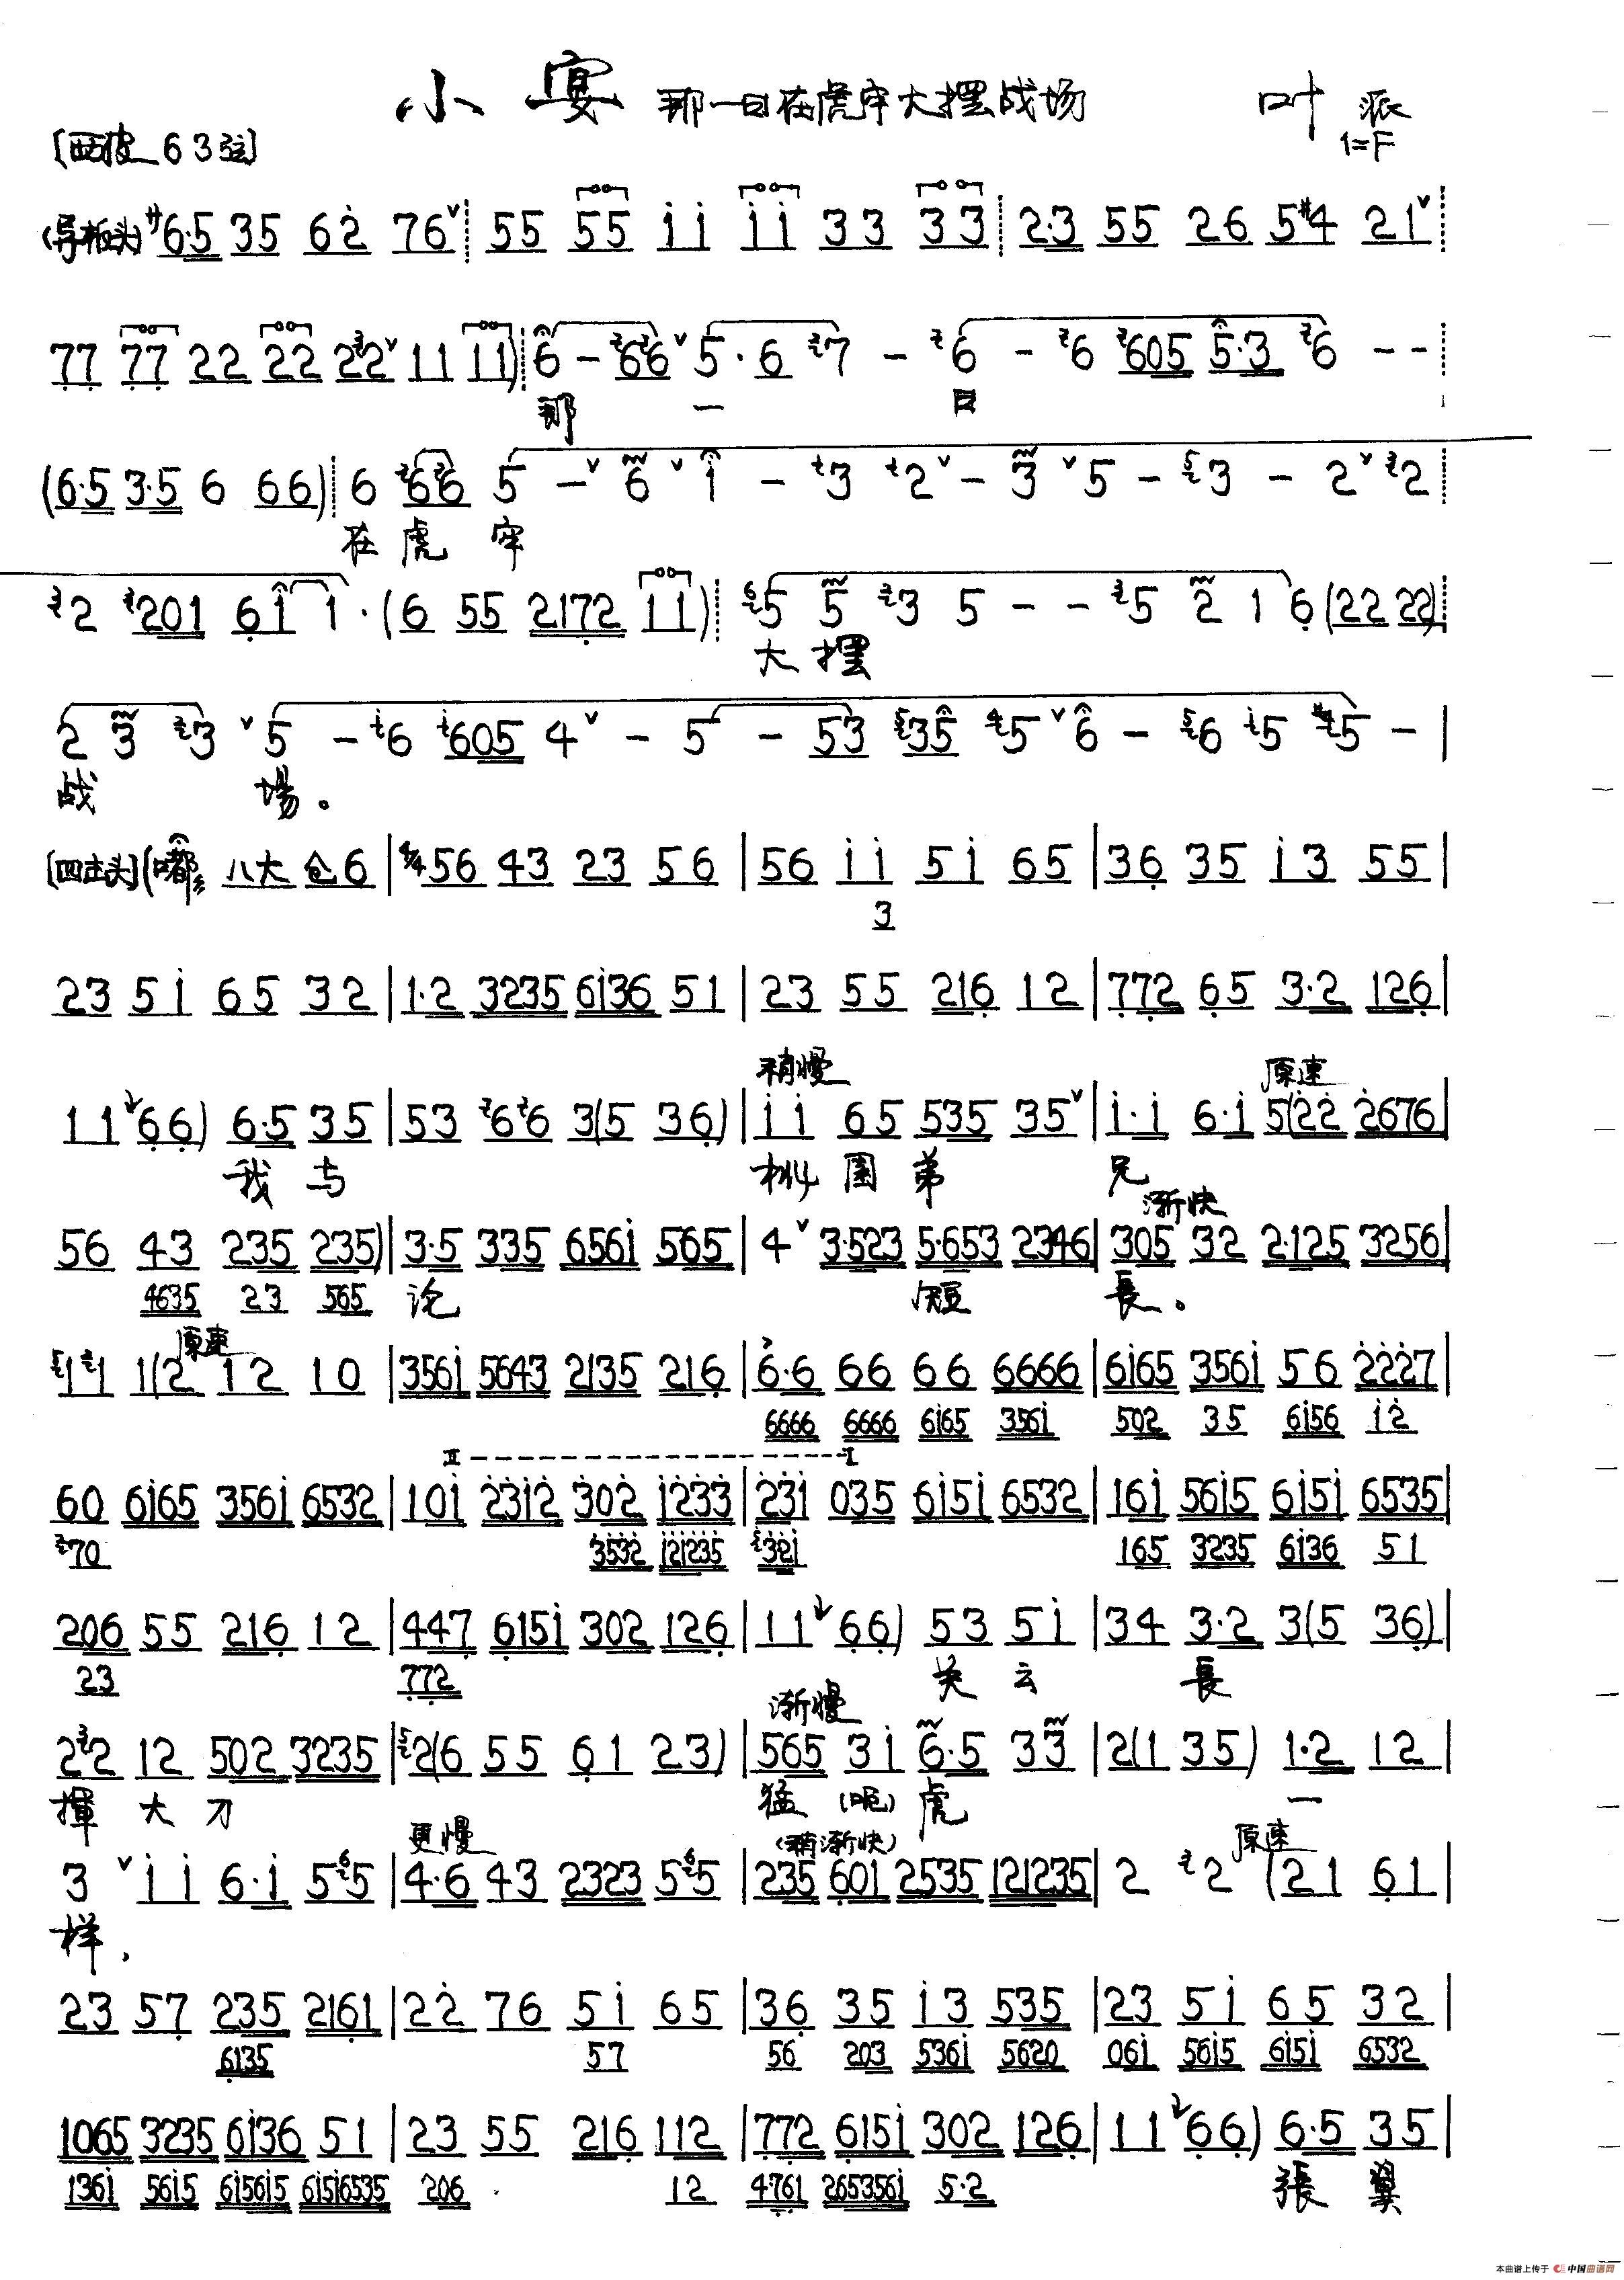 小宴 那一日在虎牢大摆战场 叶派
[西皮 63弦] 1=F
(导板头) サ 6·5 35 62 76 ∨ 55 55 ii ii 33 33 2·3 55 26 5#4 21 ∨
77 77 22 22 22 ∨ 11 11) 6 - 66 ∨ 5·6 7 - 6 - 6 605 5·3 6 - -
那 一 日
(6·5 3·5 6 66) 6 66 5 - ∨ 6 ∨ i - 3 2 ∨ - 3 ∨ 5 - 3 - 2 ∨ 2
在 虎 牢
2 201 6i 1·(6 55 2172 11) 5 5 3 5 - - 5 2 1 6 (22 22)
大 摆
2 3 3 ∨ 5 - 6 605 4 ∨ - 5 - 53 35 5 ∨ 6 - 6 5 5 - |
战 場。
[四击头] (嘟 八大 仓6 | 4/4 56 43 23 56 | 56 ii 5i 65 | 36 35 i3 55 |
3
23 5i 65 32 | 1·2 3235 6i36 51 | 23 55 216 12 | 772 65 3·2 126 |
稍慢 原速
11 66) 6·5 35 | 53 66 3(5 36) | ii 65 535 35 ∨ | i·i 6·i 5(22 2676 |
我 与 桃 园 弟 兄
渐快
56 43 235 235) | 3·5 335 656i 565 | 4 ∨ 3·523 5·653 2346 | 305 32 2·125 3256 |
4635 23 565 论 短 長。
原速
11 1(2 12 10 | 356i 5643 2135 216 | 6·6 66 66 6666 | 6i65 356i 56 2227 |
6666 6666 6i65 356i 502 35 6i56 i2
II - - - I
60 6i65 356i 6532 | 10i 23i2 302 i233 | 23i 035 6i5i 6532 | 16i 56i5 6i5i 6535 |
70 3532 i2i235 32i 165 3235 6i36 51
206 55 216 12 | 447 615i 302 126 | 11 66) 53 5i | 34 3·2 3(5 36) |
23 772 关 云 長
渐慢
22 12 502 3235 | 2(6 55 61 23) | 565 3i 6·5 33 | 2(1 35) 1·2 12 |
揮 大 刀 猛 (呃) 虎 一
更慢 (稍渐快) 原速
3 ∨ ii 6·i 55 | 4·6 43 2323 55 | 235 601 2535 121235 | 2 2 (21 61 |
样,
23 57 235 2161 | 22 76 5i 65 | 36 35 i3 535 | 23 5i 65 32 |
6135 57 56 203 536i 5620 06i 56i5 6i5i 6532
1065 3235 6i36 51 | 23 55 216 112 | 772 615i 302 126 | 11 66) 6·5 35 |
136i 56i5 6i56i5 6i5i6535 206 12 4761 2653561 5·2 張 翼
本曲谱上传于 中国曲谱网